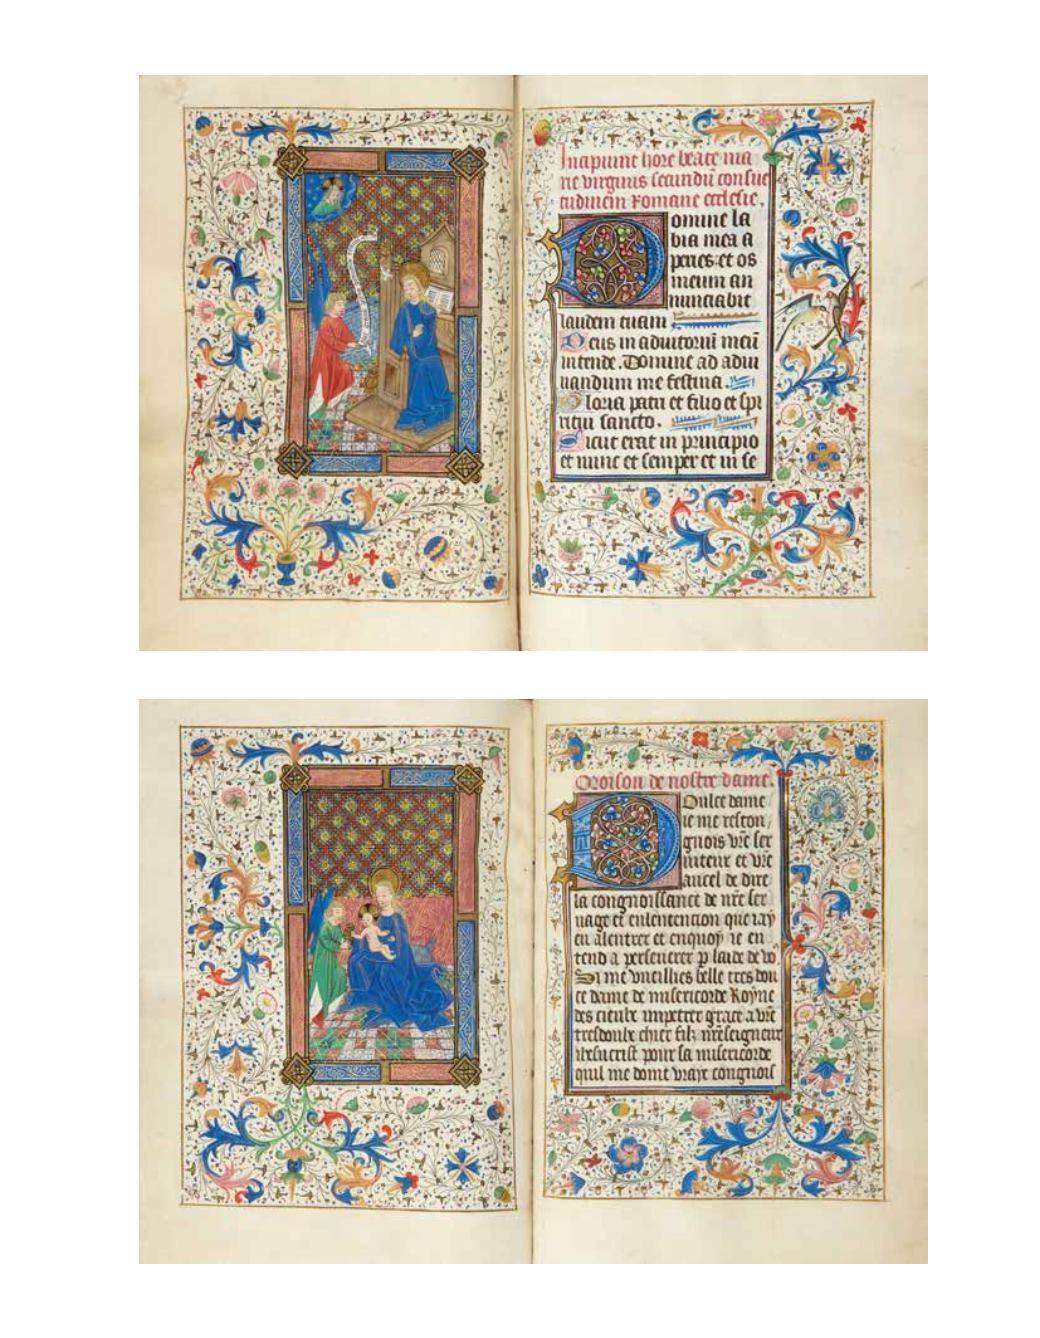 Incipiunt hore beate ma
rie virginis secundū consue
tudinem Romane ecclesie.
Domine la
bia mea a
peries: et os
meum an
nunciabit
laudem tuam.
Deus in adiutoriū meū
intende. Domine ad adiu
uandum me festina.
Gloria patri et filio et spi
ritui sancto.
Sicut erat in principio
et nunc et semper et in se
Oroison de nostre dame
Doulce dame
ie me recon
gnois vr̄e ser
uiteur et vr̄e
ancel de dire
la congnoissance de nr̄e ser
uage et en lentencion que iay
eu a lentrer et en quoy ie en
tend a perseuerer p laide de vo
Si me vueillies belle tres dou
ce dame de misericorde Royne
des cieulx impetrer grace a vr̄e
tresdoulx chier filz nr̄eseigneur
ihesucrist pour sa misericorde
quil me doint vraye congnois